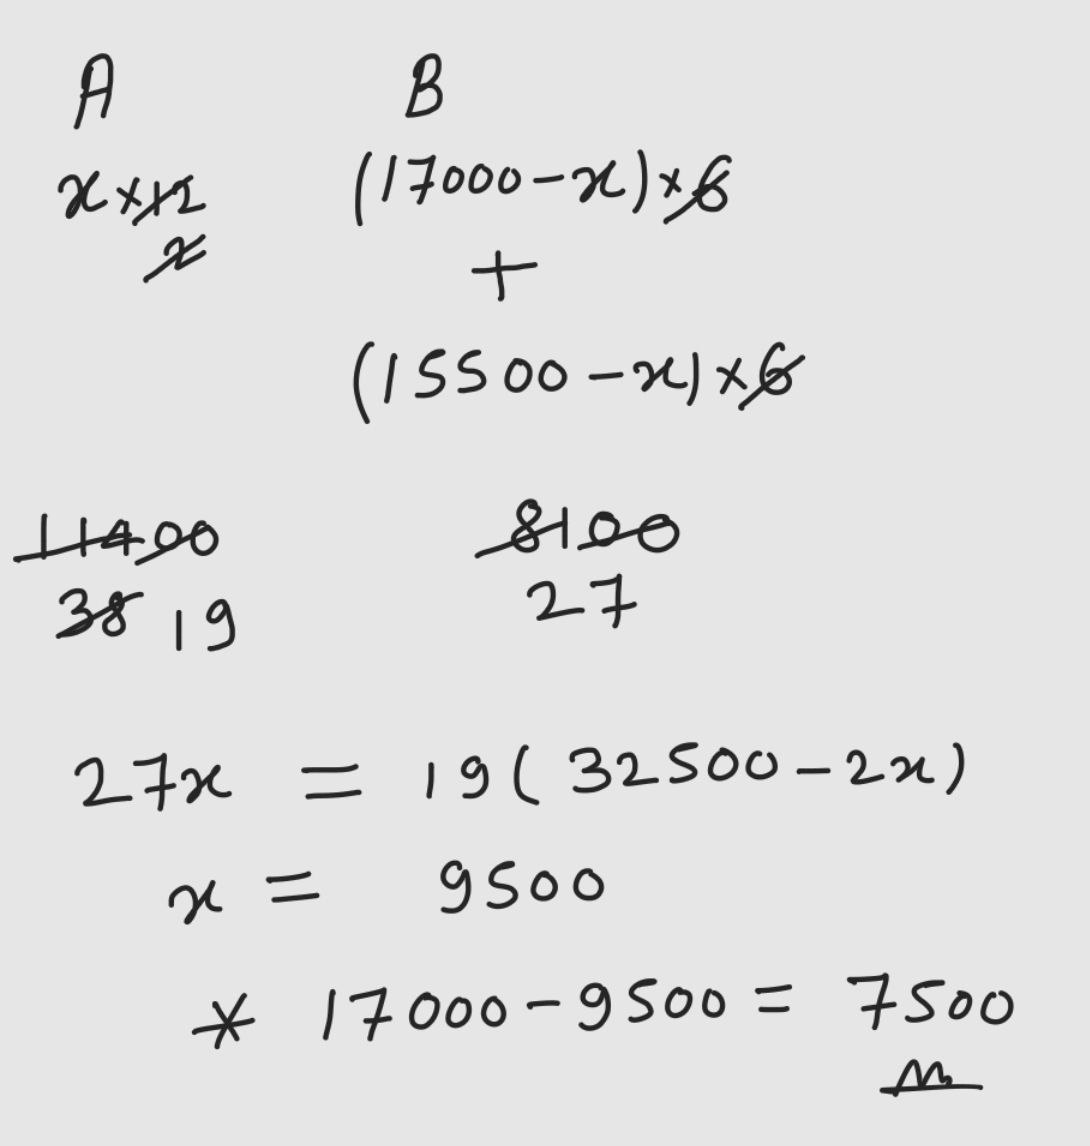 A B
x×12 (17000-x)×6
2 +
(15500-x)×6
11400 8100
38 19 27
27x = 19(32500-2x)
x = 9500
* 17000-9500 = 7500